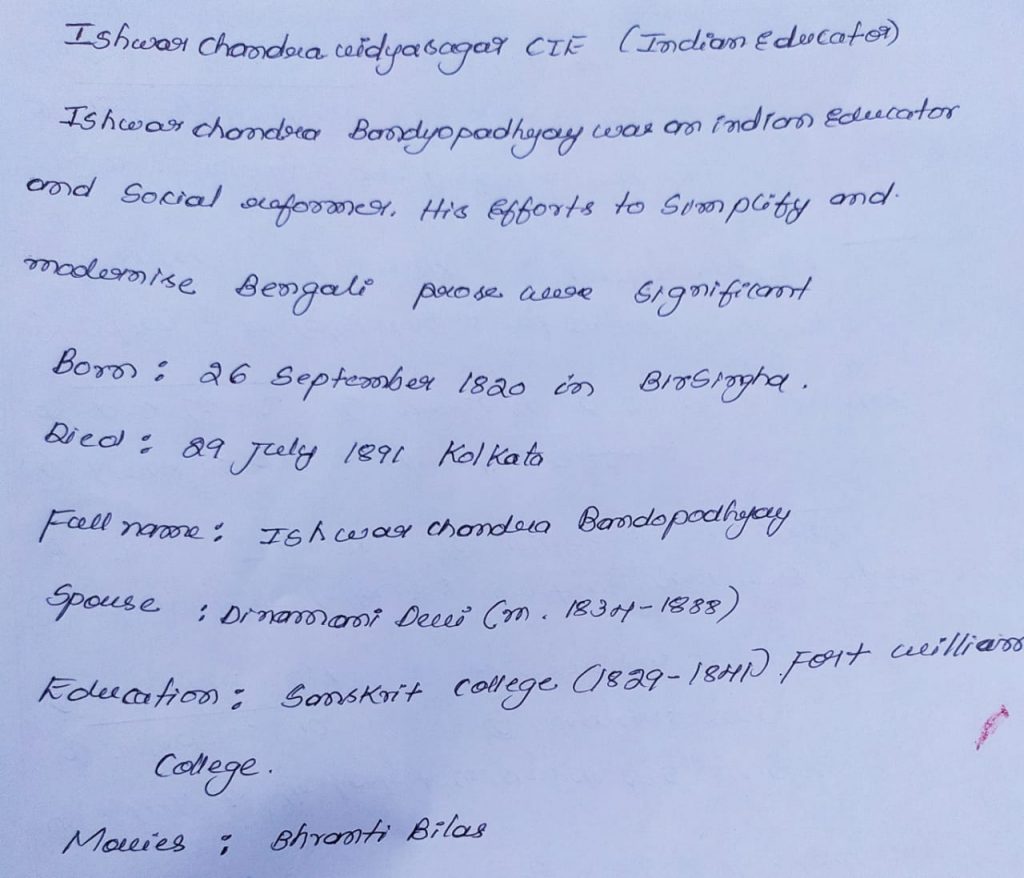 Ishwar Chandra vidyasagar CIE (Indian Educator)
Ishwar chandra Bandyopadhyay was an indian Educator
and Social reformer. His Efforts to Simplify and
modernise Bengali prose were Significant
Born : 26 September 1820 in Birsingha.
Died : 29 July 1891 Kolkata
Full name : Ishwar chandra Bandopadhyay
Spouse : Dinamani Devi (m. 1834-1888)
Education : Sanskrit College (1829-1841) Fort william
College.
Movies : Bhranti Bilas